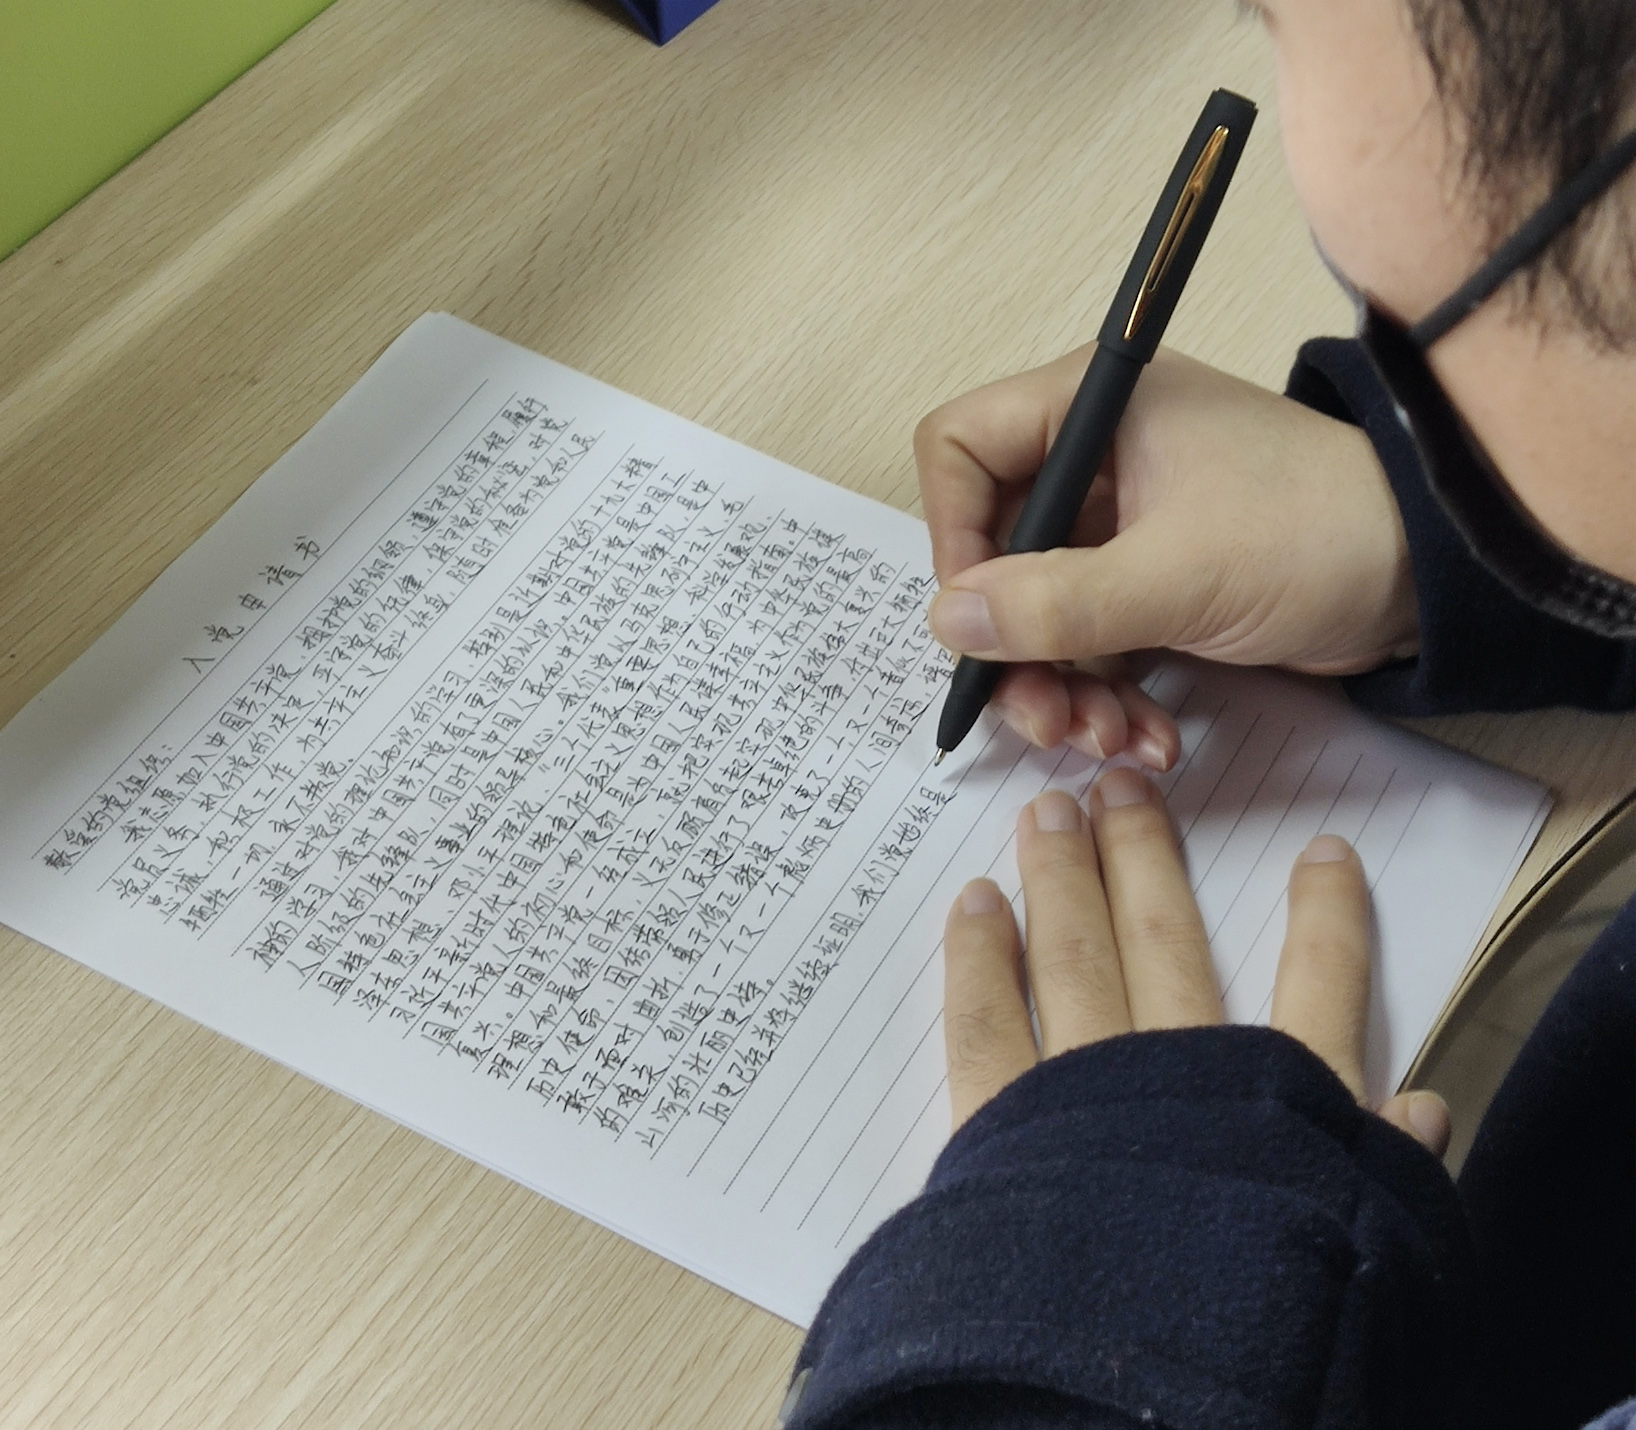 入党申请书
敬爱的党组织:
我志愿加入中国共产党,拥护党的纲领,遵守党的章程,履行
党员义务,执行党的决定,严守党的纪律,保守党的秘密,对党
忠诚,积极工作,为共产主义奋斗终身,随时准备为党和人民
牺牲一切,永不叛党。
通过对党的理论知识的学习,特别是近期对党的十九大精
神的学习,我对中国共产党有了更深的认识。中国共产党是中国工
人阶级的先锋队,同时是中国人民和中华民族的先锋队,是中
国特色社会主义事业的领导核心。我们党以马克思列宁主义、毛
泽东思想、邓小平理论、“三个代表”重要思想、科学发展观、
习近平新时代中国特色社会主义思想作为自己的行动指南。中
国共产党人的初心和使命是为中国人民谋幸福,为中华民族谋
复兴。中国共产党一经成立,就把实现共产主义作为党的最高
理想和最终目标,义无反顾肩负起实现中华民族伟大复兴的
历史使命,团结带领人民进行了艰苦卓绝的斗争,付出巨大牺牲
敢于面对曲折,勇于修正错误,攻克了一个又一个看似不可
的难关,创造了一个又一个彪炳史册的人间奇迹,谱写
山河的壮丽史诗。
历史已经并将继续证明,我们党始终是